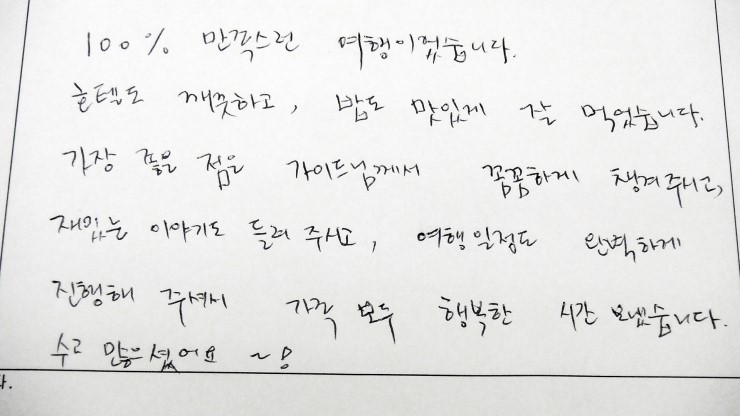 100% 만족스런 여행이었습니다.
호텔도 깨끗하고, 밥도 맛있게 잘 먹었습니다.
가장 좋은 점은 가이드님께서 꼼꼼하게 챙겨주시고,
재밌는 이야기도 들려 주시고, 여행일정도 완벽하게
진행해 주셔서 가족 모두 행복한 시간 보냈습니다.
수고 많으셨어요 ~!
다.